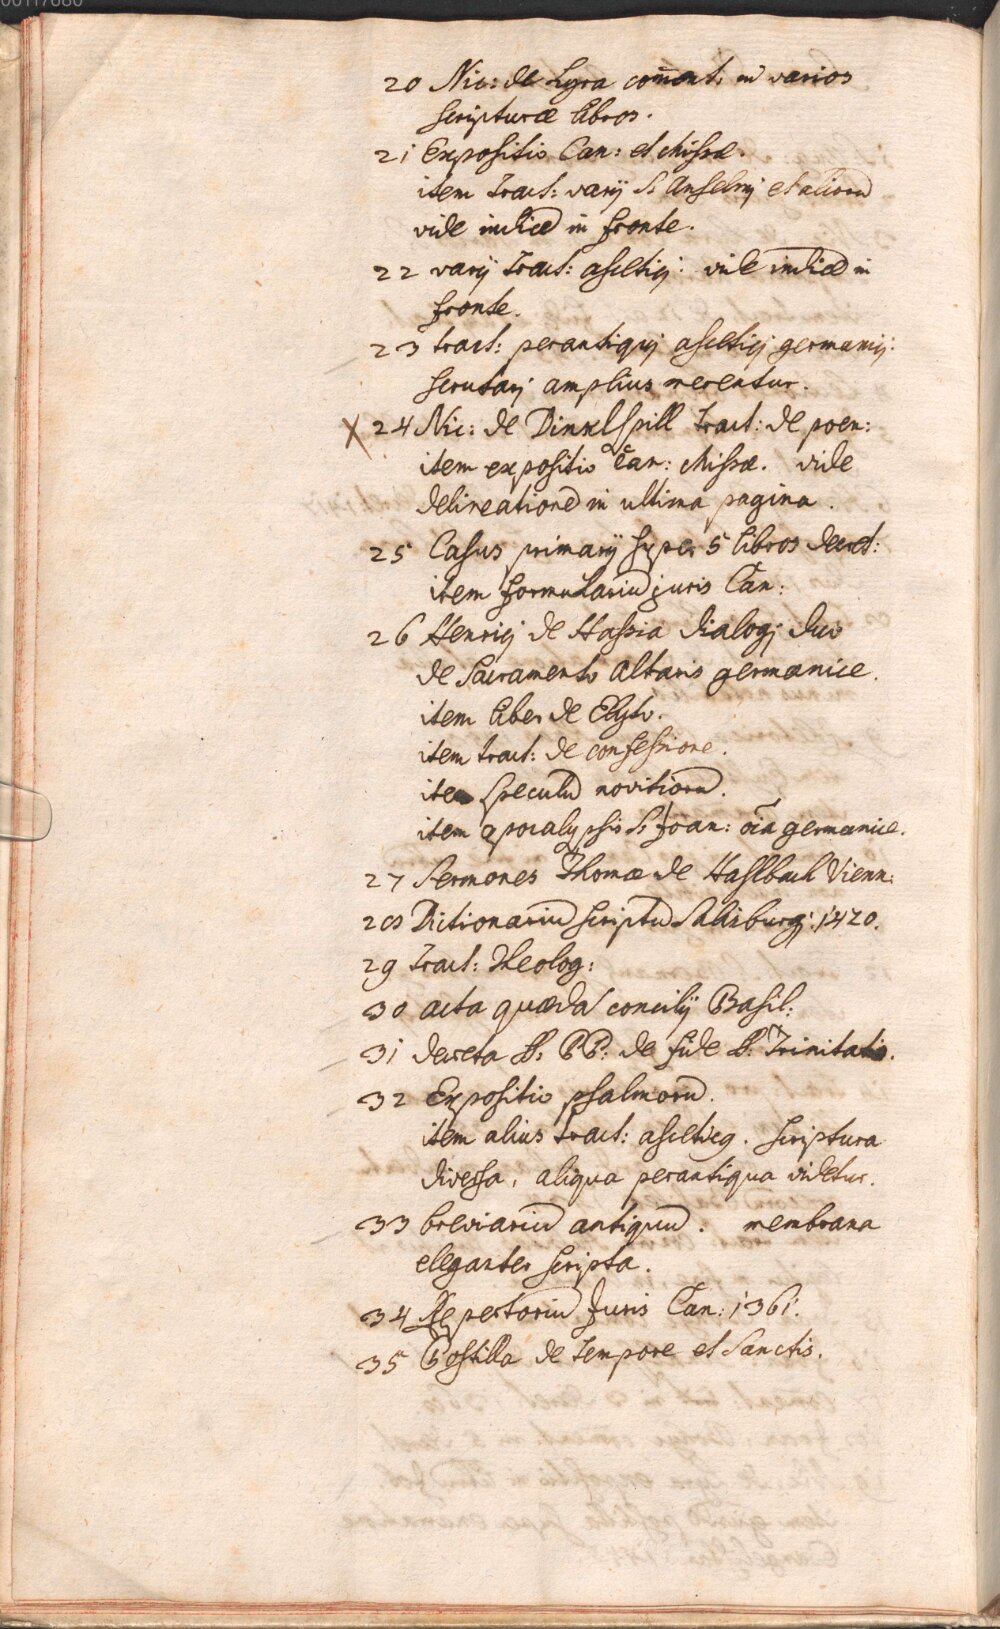 20 Nic: de Lyra com̄ent: in varios
scripturæ libros.
21 Expositio Can: et Missæ.
item tract: varij S. Anselmj et aliorū
vide indicē in fronte.
22 varij tract: asceticj: vide indicē in
fronte.
23 tract: perantiquj ascetici germanicj:
scrutarj amplius merentur.
X 24 Nic: de Dinkelspill tract: de poen:
item expositio Can: Missæ. vide
delineationē in ultima pagina.
25 Casus primarij super 5 libros decret:
item formulariū juris Can:
26 Henricj de Hassia dialogj duo
de Sacramento Altaris germanice.
item liber de
item tract: de confessione.
item speculū novitiorū.
item apocalypsis S. Joan: oīa germanice.
27 Sermones Thomæ de Haslbach Vienn:
28 Dictionariū scriptū Salisburgj: 1420.
29 Tract: theolog:
30 acta quædā concilij Basil:
31 decreta SS. PP: de fide SS. Trinitatis.
32 Expositio psalmorū.
item alius tract: asceticq. scriptura
diversa, aliqua perantiqua videtur.
33 breviariū antiquū. membrana
eleganter scripta.
34 Repertoriū Juris Can: 1361.
35 Postilla de tempore et Sanctis.